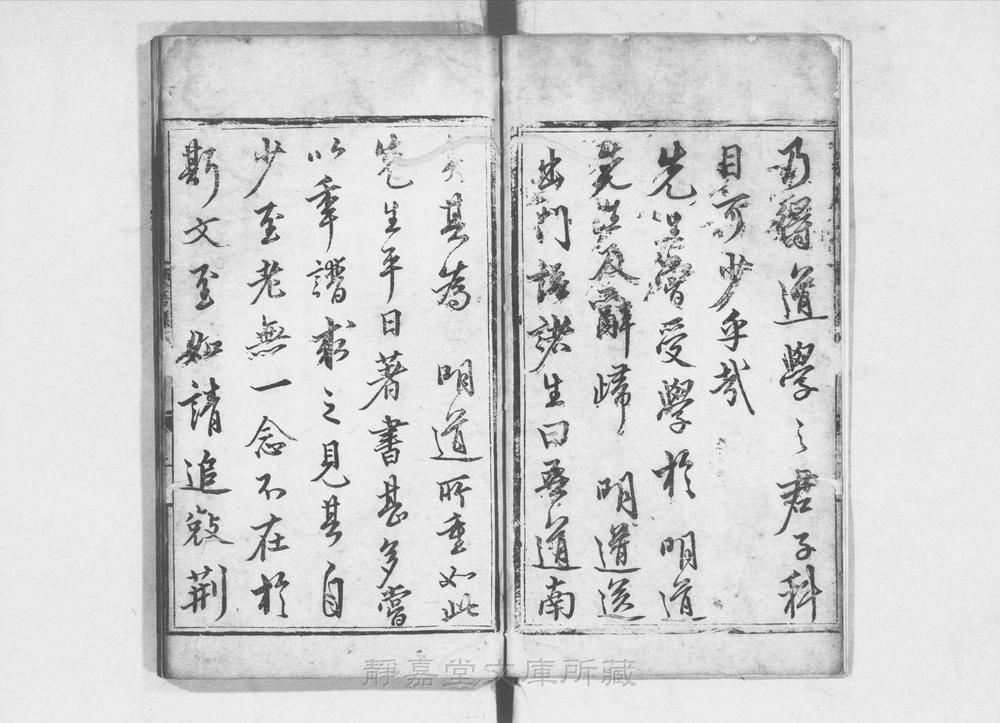 乃得道學之君子科
目可少乎哉
先生嘗受學於　明道
先生及辭歸　明道送
出門語諸生曰吾道南
矣其為　明道所重如此
先生平日著書甚多嘗
以年譜求之見其自
少至老無一念不在於
斯文至如請追奪荊
靜嘉堂文庫所藏